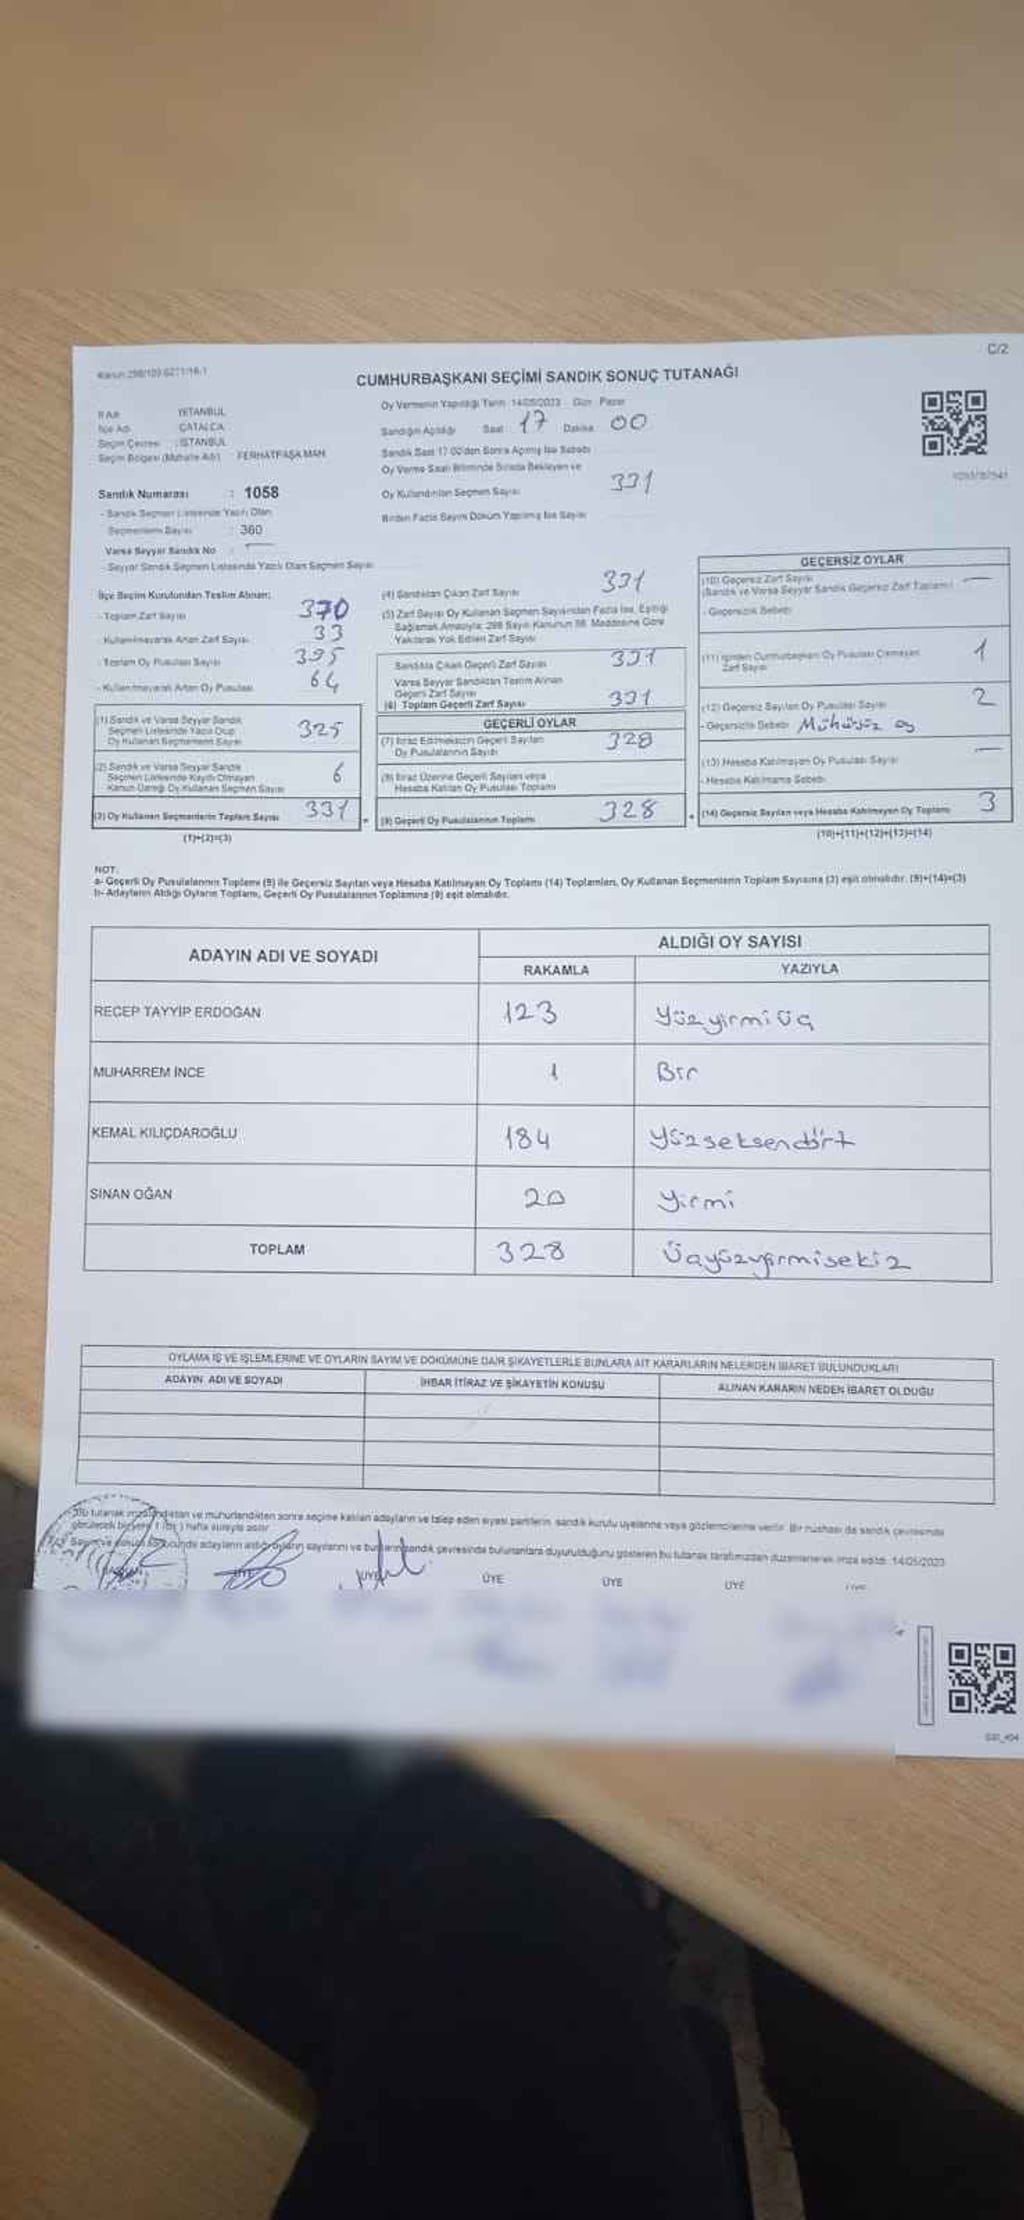 Kanun:298/103 6271/16-1
C/2
CUMHURBAŞKANI SEÇİMİ SANDIK SONUÇ TUTANAĞI
İli Adı : İSTANBUL
İlçe Adı : ÇATALCA
Seçim Çevresi : İSTANBUL
Seçim Bölgesi (Mahalle Adı) : FERHATPAŞA MAH.
Oy Vermenin Yapıldığı Tarih: 14/05/2023 Gün: Pazar
Sandığın Açıldığı Saat: 17 Dakika: 00
Sandık Saat 17.00'den Sonra Açılmış İse Sebebi
Oy Verme Saati Bitiminde Sırada Bekleyen ve
Oy Kullandırılan Seçmen Sayısı 331
Birden Fazla Sayım Döküm Yapılmış İse Sayısı
Sandık Numarası : 1058
- Sandık Seçmen Listesinde Yazılı Olan
Seçmenlerin Sayısı : 360
Varsa Seyyar Sandık No : —
- Seyyar Sandık Seçmen Listesinde Yazılı Olan Seçmen Sayısı
İlçe Seçim Kurulundan Teslim Alınan;
- Toplam Zarf Sayısı 370
- Kullanılmayarak Artan Zarf Sayısı 33
- Toplam Oy Pusulası Sayısı 395
- Kullanılmayarak Artan Oy Pusulası 64
(1) Sandık ve Varsa Seyyar Sandık
Seçmen Listesinde Yazılı Olup
Oy Kullanan Seçmenlerin Sayısı 325
(2) Sandık ve Varsa Seyyar Sandık
Seçmen Listesinde Kayıtlı Olmayan
Kanun Gereği Oy Kullanan Seçmen Sayısı 6
(3) Oy Kullanan Seçmenlerin Toplam Sayısı 331
(1)+(2)=(3)
(4) Sandıktan Çıkan Zarf Sayısı 331
(5) Zarf Sayısı Oy Kullanan Seçmen Sayısından Fazla İse, Eşitliği
Sağlamak Amacıyla, 298 Sayılı Kanunun 98. Maddesine Göre
Yakılarak Yok Edilen Zarf Sayısı
Sandıkta Çıkan Geçerli Zarf Sayısı 331
Varsa Seyyar Sandıktan Teslim Alınan
Geçerli Zarf Sayısı
(6) Toplam Geçerli Zarf Sayısı 331
GEÇERLİ OYLAR
(7) İtiraz Edilmeksizin Geçerli Sayılan
Oy Pusulalarının Sayısı 328
(8) İtiraz Üzerine Geçerli Sayılan veya
Hesaba Katılan Oy Pusulası Toplamı
(9) Geçerli Oy Pusulalarının Toplamı 328
GEÇERSİZ OYLAR
(10) Geçersiz Zarf Sayısı —
(Sandık ve Varsa Seyyar Sandık Geçersiz Zarf Toplamı)
- Geçersizlik Sebebi:
(11) İçinden Cumhurbaşkanı Oy Pusulası Çıkmayan
Zarf Sayısı 1
(12) Geçersiz Sayılan Oy Pusulası Sayısı 2
- Geçersizlik Sebebi: Mühürsüz oy
(13) Hesaba Katılmayan Oy Pusulası Sayısı —
- Hesaba Katılmama Sebebi:
(14) Geçersiz Sayılan veya Hesaba Katılmayan Oy Toplamı 3
(10)+(11)+(12)+(13)=(14)
NOT:
a- Geçerli Oy Pusulalarının Toplamı (9) ile Geçersiz Sayılan veya Hesaba Katılmayan Oy Toplamı (14) Toplamları, Oy Kullanan Seçmenlerin Toplam Sayısına (3) eşit olmalıdır. (9)+(14)=(3)
b- Adayların Aldığı Oyların Toplamı, Geçerli Oy Pusulalarının Toplamına (9) eşit olmalıdır.
ADAYIN ADI VE SOYADI
ALDIĞI OY SAYISI
RAKAMLA YAZIYLA
RECEP TAYYİP ERDOĞAN 123 Yüzyirmiüç
MUHARREM İNCE 1 Bir
KEMAL KILIÇDAROĞLU 184 Yüzseksendört
SİNAN OĞAN 20 Yirmi
TOPLAM 328 Üçyüzyirmisekiz
OYLAMA İŞ VE İŞLEMLERİNE VE OYLARIN SAYIM VE DÖKÜMÜNE DAİR ŞİKAYETLERLE BUNLARA AİT KARARLARIN NELERDEN İBARET BULUNDUKLARI
ADAYIN ADI VE SOYADI İHBAR İTİRAZ VE ŞİKAYETİN KONUSU ALINAN KARARIN NEDEN İBARET OLDUĞU
Bu tutanak imzalandıktan ve mühürlendikten sonra seçime katılan adayların ve talep eden siyasi partilerin sandık kurulu üyelerine veya gözlemcilerine verilir. Bir nüshası da sandık çevresinde
görülecek bir yere 1 (bir) hafta süreyle asılır.
sayılarını ve bunların sandık çevresinde bulunanlara duyurulduğunu gösteren bu tutanak tarafımızdan düzenlenerek imza edildi. 14/05/2023
ÜYE ÜYE ÜYE ÜYE